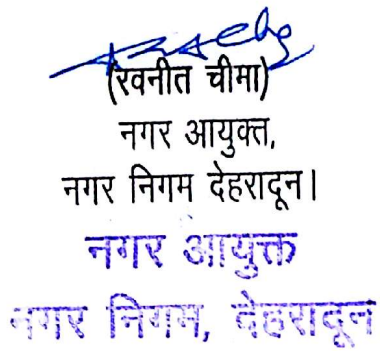 (रवनीत चीमा)
नगर आयुक्त,
नगर निगम देहरादून।
नगर आयुक्त
नगर निगम, देहरादून